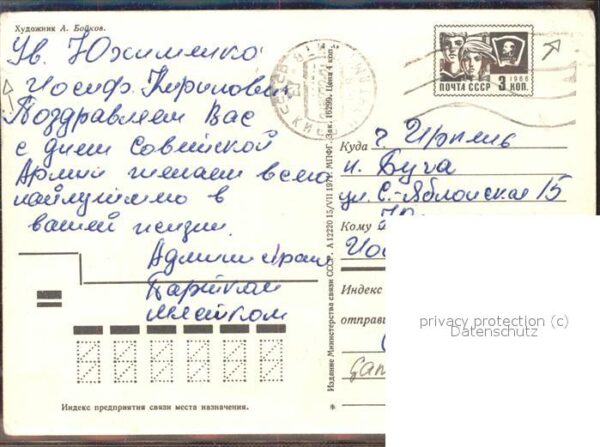 Художник А. Бойков.
Ув. Юхименко
Иосиф Кирилович
Поздравляем Вас
с днем Советской
Армии желаем всего
найлучшего в
вашей жизни.
Администрац
Партком
Местком
Индекс предприятия связи места назначения.
Издание Министерства связи СССР. А 12220 15/VII 1971. МПФГ. Зак. 16299. Цена 4 коп.
ПОЧТА СССР 3 КОП.
1966
Куда г. Ирпень
п. Буча
ул. С.-Яблонская 15
Кому
Иос
Индекс
отправи
privacy protection (c)
Datenschutz